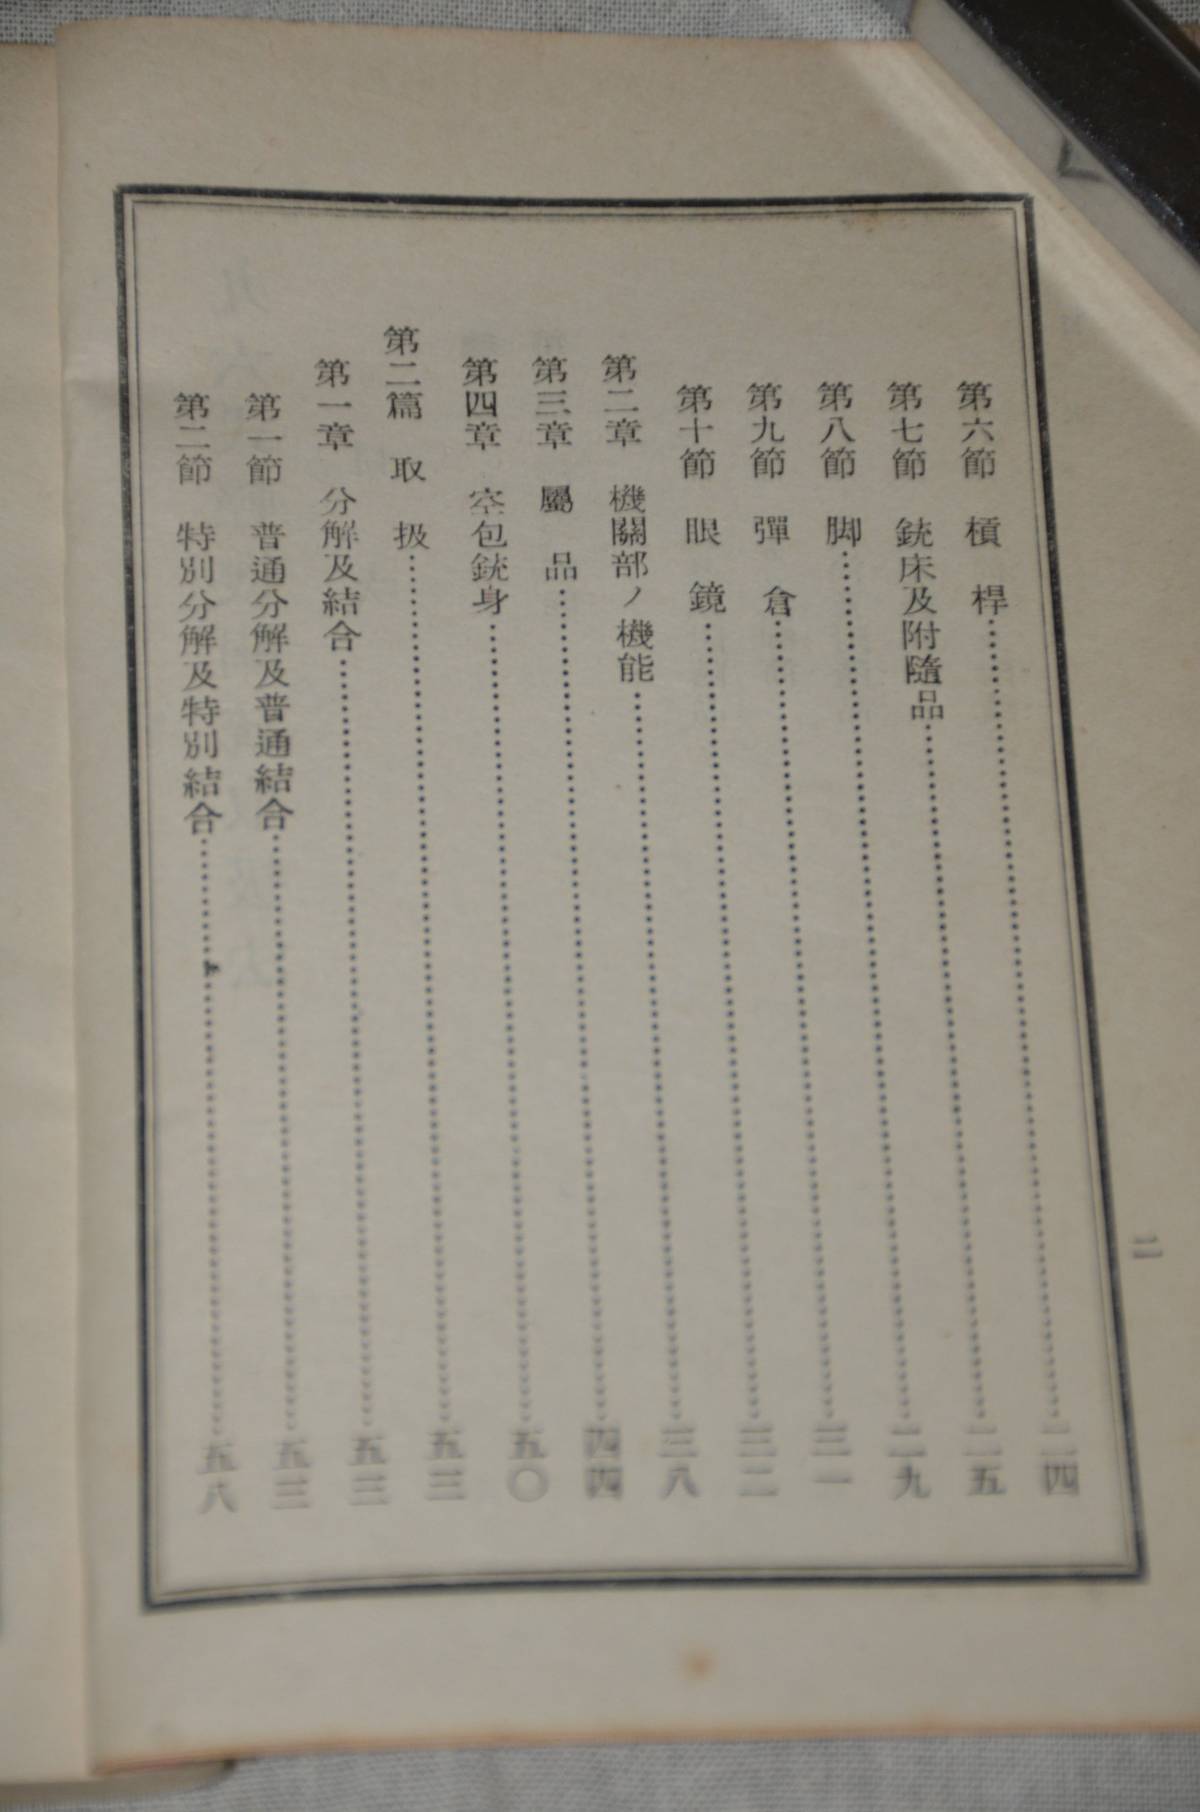 二
第六節 槓桿……二四
第七節 銃床及附隨品……二五
第八節 脚……二九
第九節 彈倉……三一
第十節 眼鏡……三二
第二章 機關部ノ機能……三八
第三章 屬品……四四
第四章 空包銃身……五〇
第二篇 取扱……五三
第一章 分解及結合……五三
第一節 普通分解及普通結合……五三
第二節 特別分解及特別結合……五八